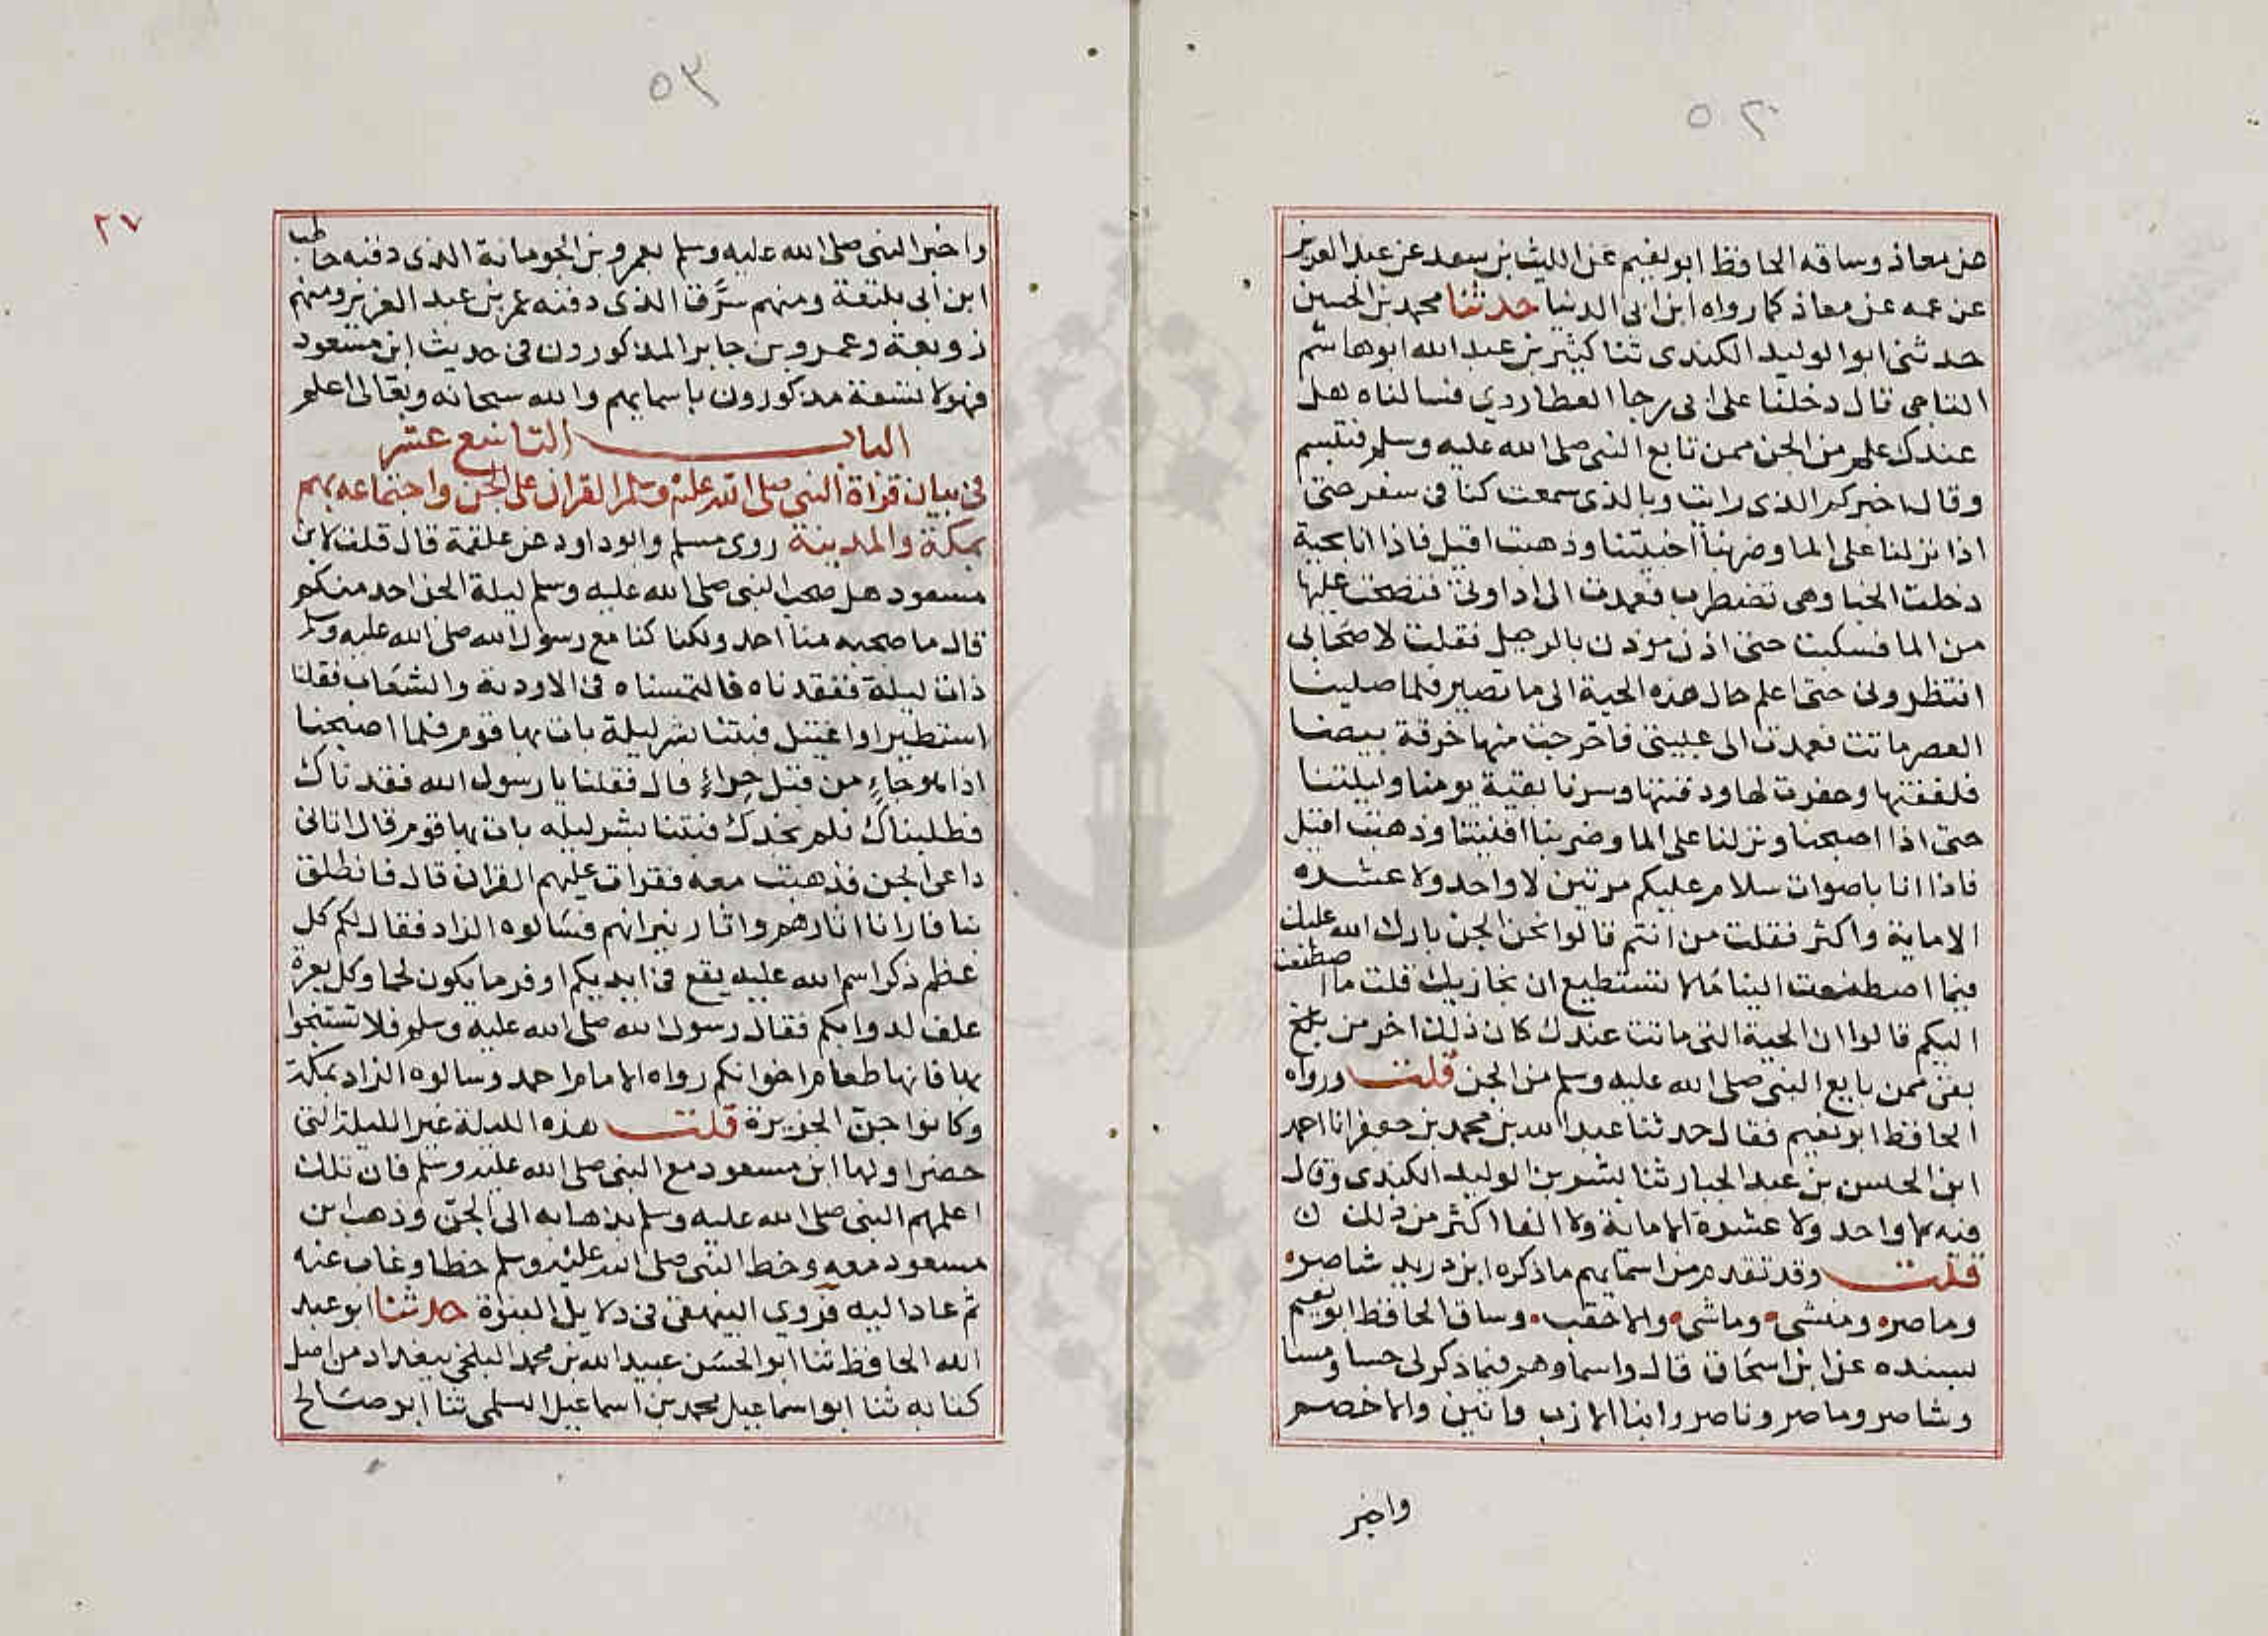 ٥٢
عن معاذ وساقه الحافظ ابو نعيم عن الليث بن سعد عن عبد العزيز
عن عمه عن معاذ كما رواه ابن ابى الدنيا حدثنا محمد بن الحسين
حدثنى ابو الوليد الكندى ثنا كثير بن عبد الله ابو هاشم
الناجى قال دخلنا على ابى رجا العطاردي فسالناه هل
عندك علم من الجن ممن تابع النبى صلى الله عليه وسلم فتبسم
وقال اخبركم الذى رايت وبالذى سمعت كنا فى سفر حتى
اذا نزلنا على الما وضربنا اخبيتنا وذهبت اقيل فاذا انا بحية
دخلت الخبا وهى تضطرب فعمدت الى اداوتى فنضحت عليها
من الما فسكنت حتى اذن موذن بالرحيل فقلت لاصحابى
انتظرونى حتى اعلم حال هذه الحية الى ما تصير فلما صلينا
العصر ماتت فعمدت الى عيبتى فاخرجت منها خرقة بيضا
فلففتها وحفرت لها ودفنتها وسرنا بقية يومنا وليلتنا
حتى اذا اصبحنا ونزلنا على الما وضربنا اخبيتنا وذهبت اقيل
فاذا انا باصوات سلام عليكم مرتين لا واحد ولا عشره
الا ماية واكثر فقلت من انتم قالوا نحن الجن بارك الله عليك
فيما اصطنعت الينا مالا نستطيع ان نجازيك قلت ما اصطنعت
اليكم قالوا ان الحية التى ماتت عندك كان ذلك اخر من بقى
بقى ممن بايع النبى صلى الله عليه وسلم من الجن قلت ورواه
الحافظ ابو نعيم فقال حدثنا عبد الله بن محمد بن جعفر انا احمد
ابن الحسن بن عبد الجبار ثنا بشر بن الوليد الكندى وقال
فيه لا واحد ولا عشرة الا ماية ولا الفا اكثر من ذلك
قلت وقد تقدم من اسمايهم ما ذكره ابن دريد شاصره
وماصره ومنشى وماشى والاحقب وساق الحافظ ابو نعيم
بسنده عن ابن اسحاق قال واسماوهم فيما ذكر لى حسا ومسا
وشاصر وماصر وناصر وابنا الازب وانين والاخصم
واخبر
٥٣
٢٧
واخبر النبى صلى الله عليه وسلم بعمرو بن الجومانة الذى دفنه حاطب
ابن ابى بلتعة ومنهم سرق الذى دفنه عمر بن عبد العزيز ومنهم
زوبعة وعمرو بن جابر المذكورون فى حديث ابن مسعود
فهولا تسعة مذكورون باسمايهم والله سبحانه وتعالى اعلم
الباب التاسع عشر
فى بيان قراة النبى صلى الله عليه وسلم القران على الجن واجتماعه بهم
بمكة والمدينة روى مسلم وابو داود عن علقمة قال قلت لابن
مسعود هل صحب النبى صلى الله عليه وسلم ليلة الجن احد منكم
قال ما صحبه منا احد ولكنا كنا مع رسول الله صلى الله عليه وسلم
ذات ليلة ففقدناه فالتمسناه فى الاودية والشعاب فقلنا
استطير او اغتيل فبتنا بشر ليلة بات بها قوم فلما اصبحنا
اذا هو جاءٍ من قبل حِراءٍ قال فقلنا يا رسول الله فقدناك
فطلبناك فلم نجدك فبتنا بشر ليله بات بها قوم قال اتانى
داعى الجن فذهبت معه فقرات عليهم القران قال فانطلق
بنا فارانا اثارهم واثار نيرانهم فسالوه الزاد فقال لكم كل
عظم ذكر اسم الله عليه يقع فى ايديكم اوفر ما يكون لحما وكل بعرة
علف لدوابكم فقال رسول الله صلى الله عليه وسلم فلا تستنجوا
بها فانها طعام اخوانكم رواه الامام احمد وسالوه الزاد بمكة
وكانوا جنّ الجزيرة قلت هذه الليلة غير الليلة التى
حضر اولها ابن مسعود مع النبى صلى الله عليه وسلم فان تلك
اعلمهم النبى صلى الله عليه وسلم بذهابه الى الجنّ وذهب ابن
مسعود معه وخط النبى صلى الله عليه وسلم خطا وغاب عنه
ثم عاد اليه فروي البيهقى فى دلايل النبوة حدثنا ابو عبد
الله الحافظ ثنا ابو الحسن عبيد الله بن محمد البلخى ببغداد من اصل
كتابه ثنا ابو اسماعيل محمد بن اسماعيل السلمى ثنا ابو صالح